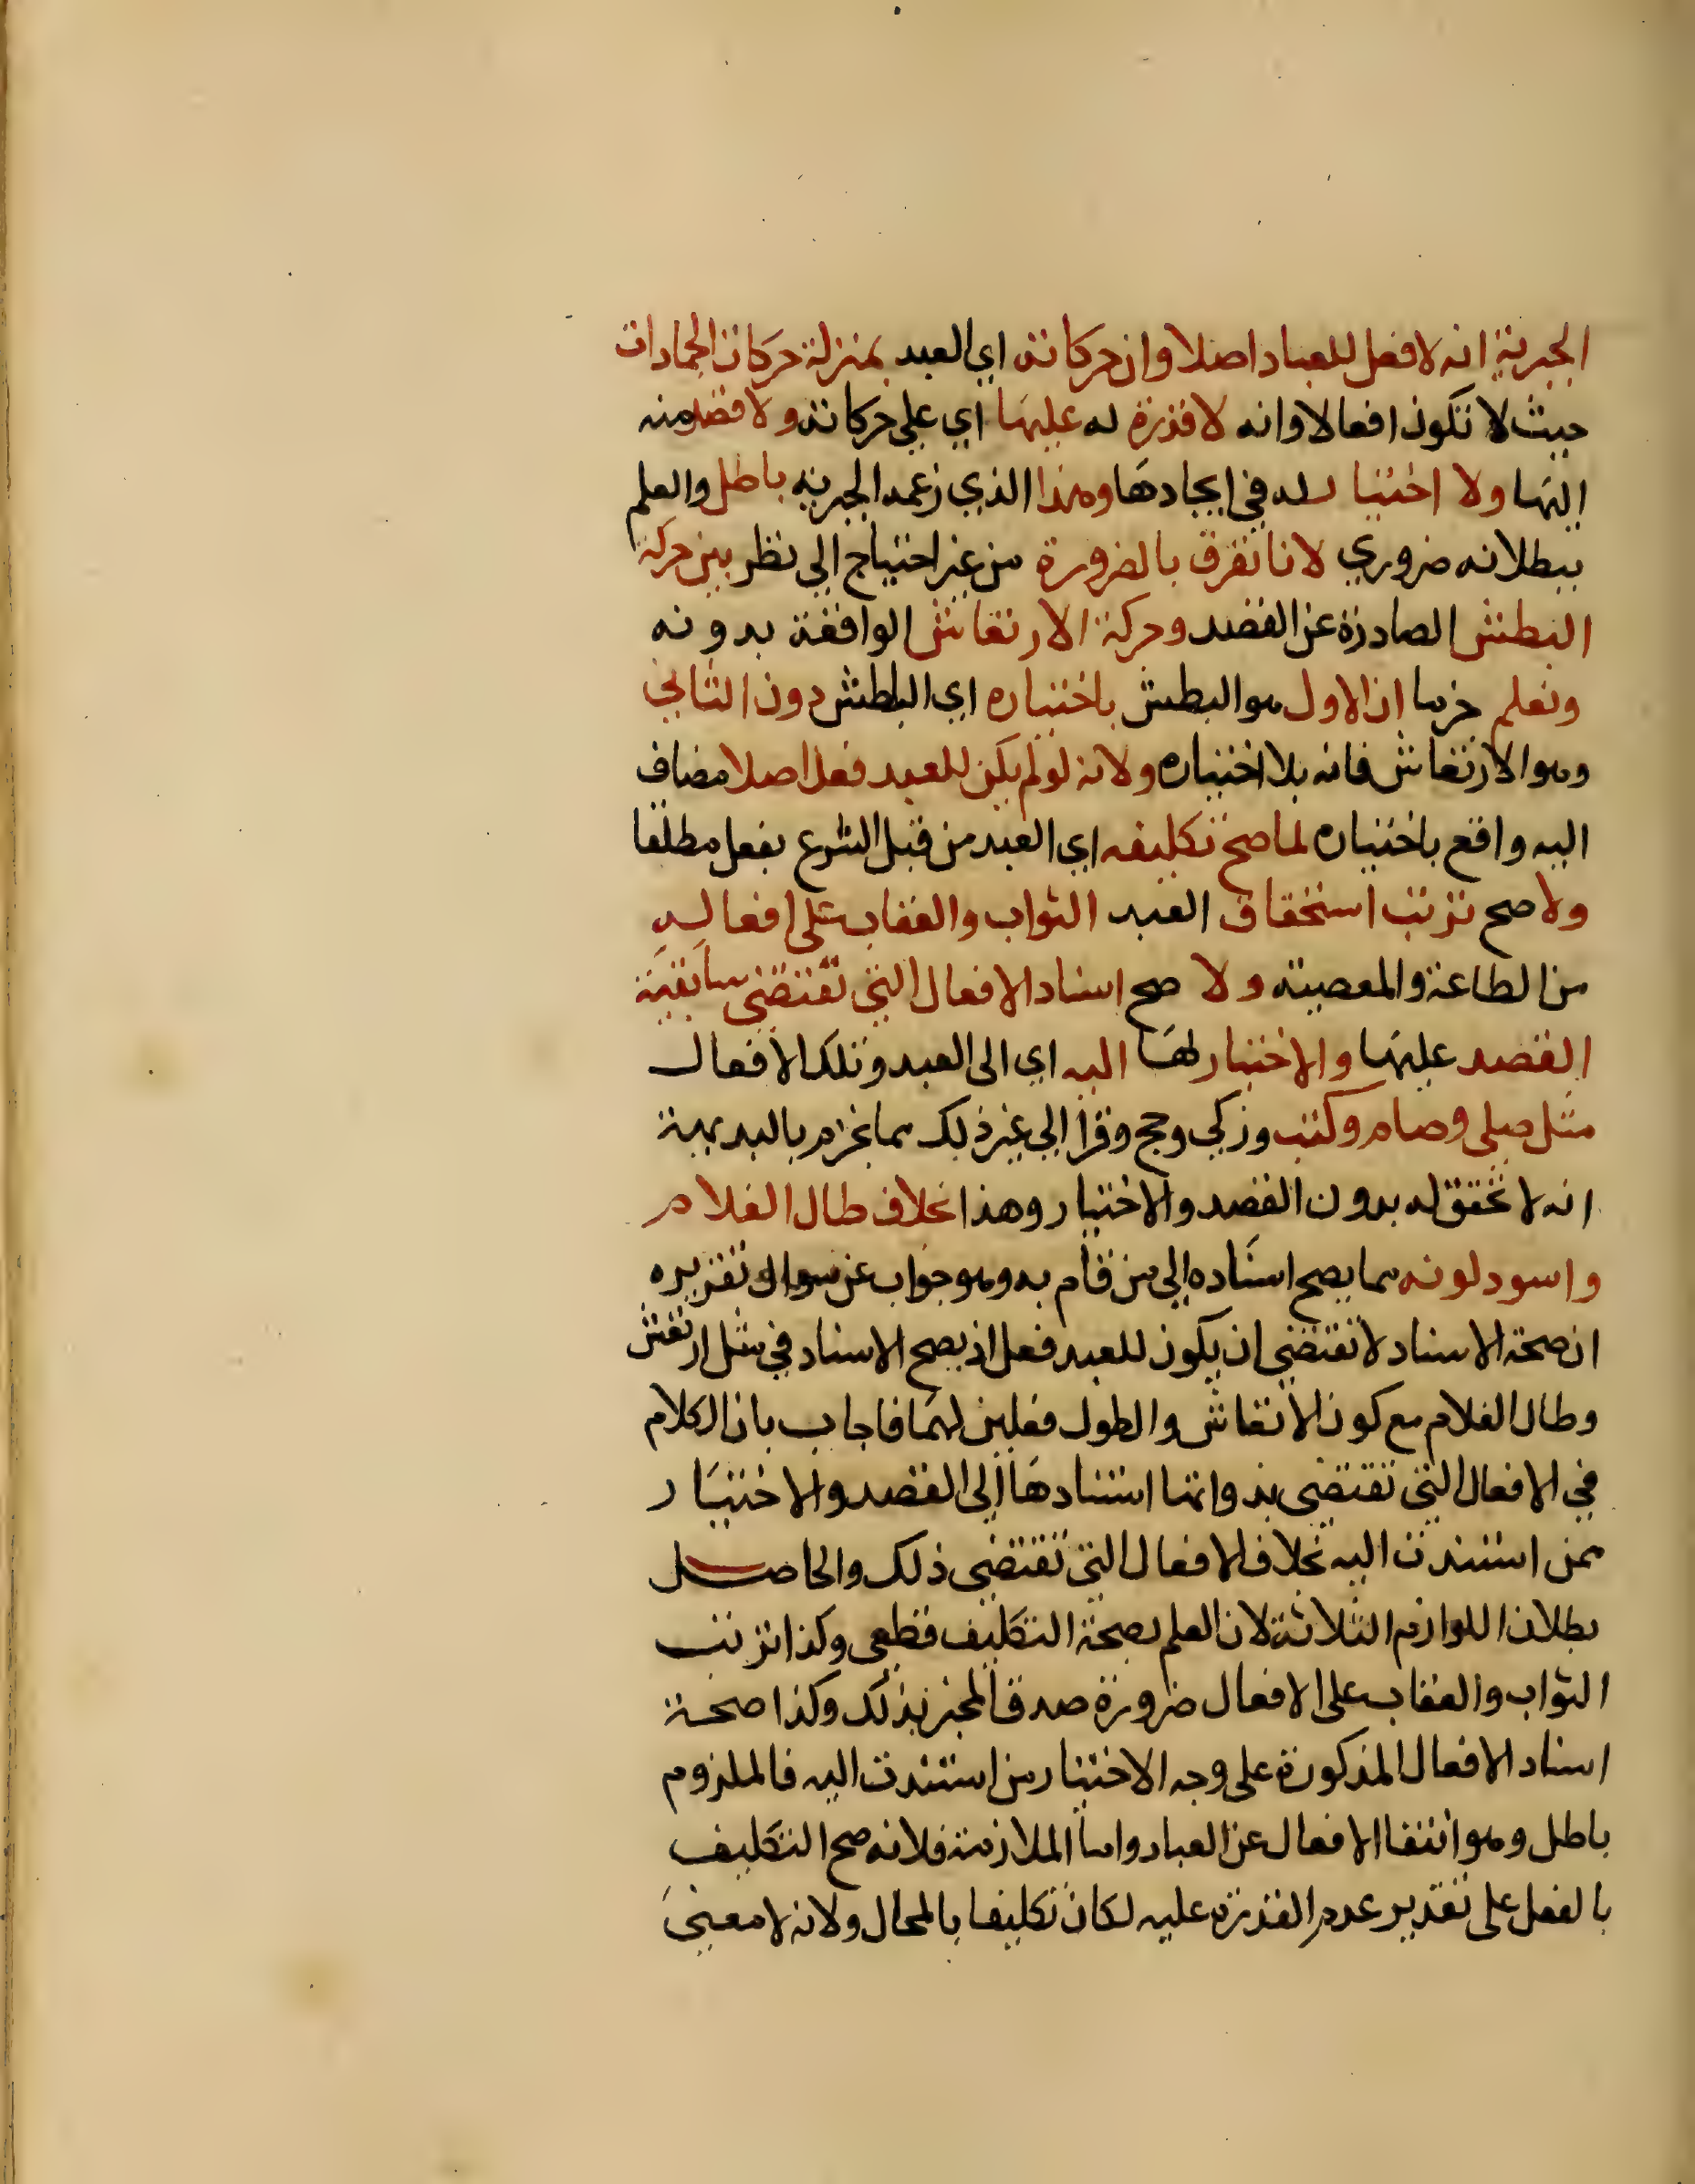 الجبرية انه لا فعل للعباد اصلا وان حركاته اي العبد بمنزلة حركات الجمادات
حيث لا تكون افعالا وانه لا قدرة له عليها اي علي حركاته ولا قصد منه
اليها ولا اختيار له في ايجادها وهذا الذي زعمه الجبرية باطل والعلم
ببطلانه ضروري لانا نفرق بالضرورة من غير احتياج الي نظر بين حركة
البطش الصادرة عن القصد وحركة الارتعاش الواقعة بدونه
ونعلم جزما ان الاول هو البطش باختياره اي الباطش دون الثاني
وهو الارتعاش فانه بلا اختياره ولانه لو لم يكن للعبد فعل اصلا مضاف
اليه واقع باختياره لما صح تكليفه اي العبد من قبل الشرع بفعل مطلقا
ولا صح ترتب استحقاق العبد الثواب والعقاب على افعاله
من الطاعة والمعصية ولا صح اسناد الافعال التي تقتضي سابقية
القصد عليها والاختيار لها اليه اي الى العبد وتلك الافعال
مثل صلى وصام وكتب وزكي وحج وقرا الي غير ذلك مما نجزم بالبديهة
انه لا تحقق له بدون القصد والاختيار وهذا بخلاف طال الغلام
واسود لونه مما يصح اسناده الي من قام به وهو جواب عن سوال تقريره
ان صحة الاسناد لا تقتضي ان يكون للعبد فعل اذ يصح الاسناد في مثل ارتعش
وطال الغلام مع كون الارتعاش والطول فعلين لهما فاجاب بان الكلام
في الافعال التي تقتضي بذواتها استنادها الى القصد والاختيار
ممن استندت اليه بخلاف الافعال التي تقتضي ذلك والحاصل
بطلان اللوازم الثلاثة لان العلم بصحة التكليف قطعي وكذا ترتب
الثواب والعقاب على الافعال ضرورة صدق المخبر بذلك وكذا صحة
اسناد الافعال المذكورة على وجه الاختيار من استندت اليه فالملزوم
باطل وهو انتفا الافعال عن العباد واما الملازمة فلانه صح التكليف
بالفعل على تقدير عدم القدرة عليه لكان تكليفا بالمحال ولانه لا معني